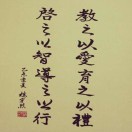 教之以愛育之以禮
啓之以智導之以行